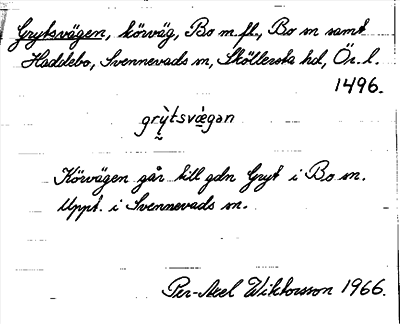 Grytsvägen, körväg, Bo m.fl., Bo sn samt
Haddebo, Svennevads sn, Sköllersta hd, Ör. l.
1496.
grỳtsvægan
Körvägen går till gdn Gryt i Bo sn.
Uppt. i Svennevads sn.
Per-Axel Wiktorsson 1966.